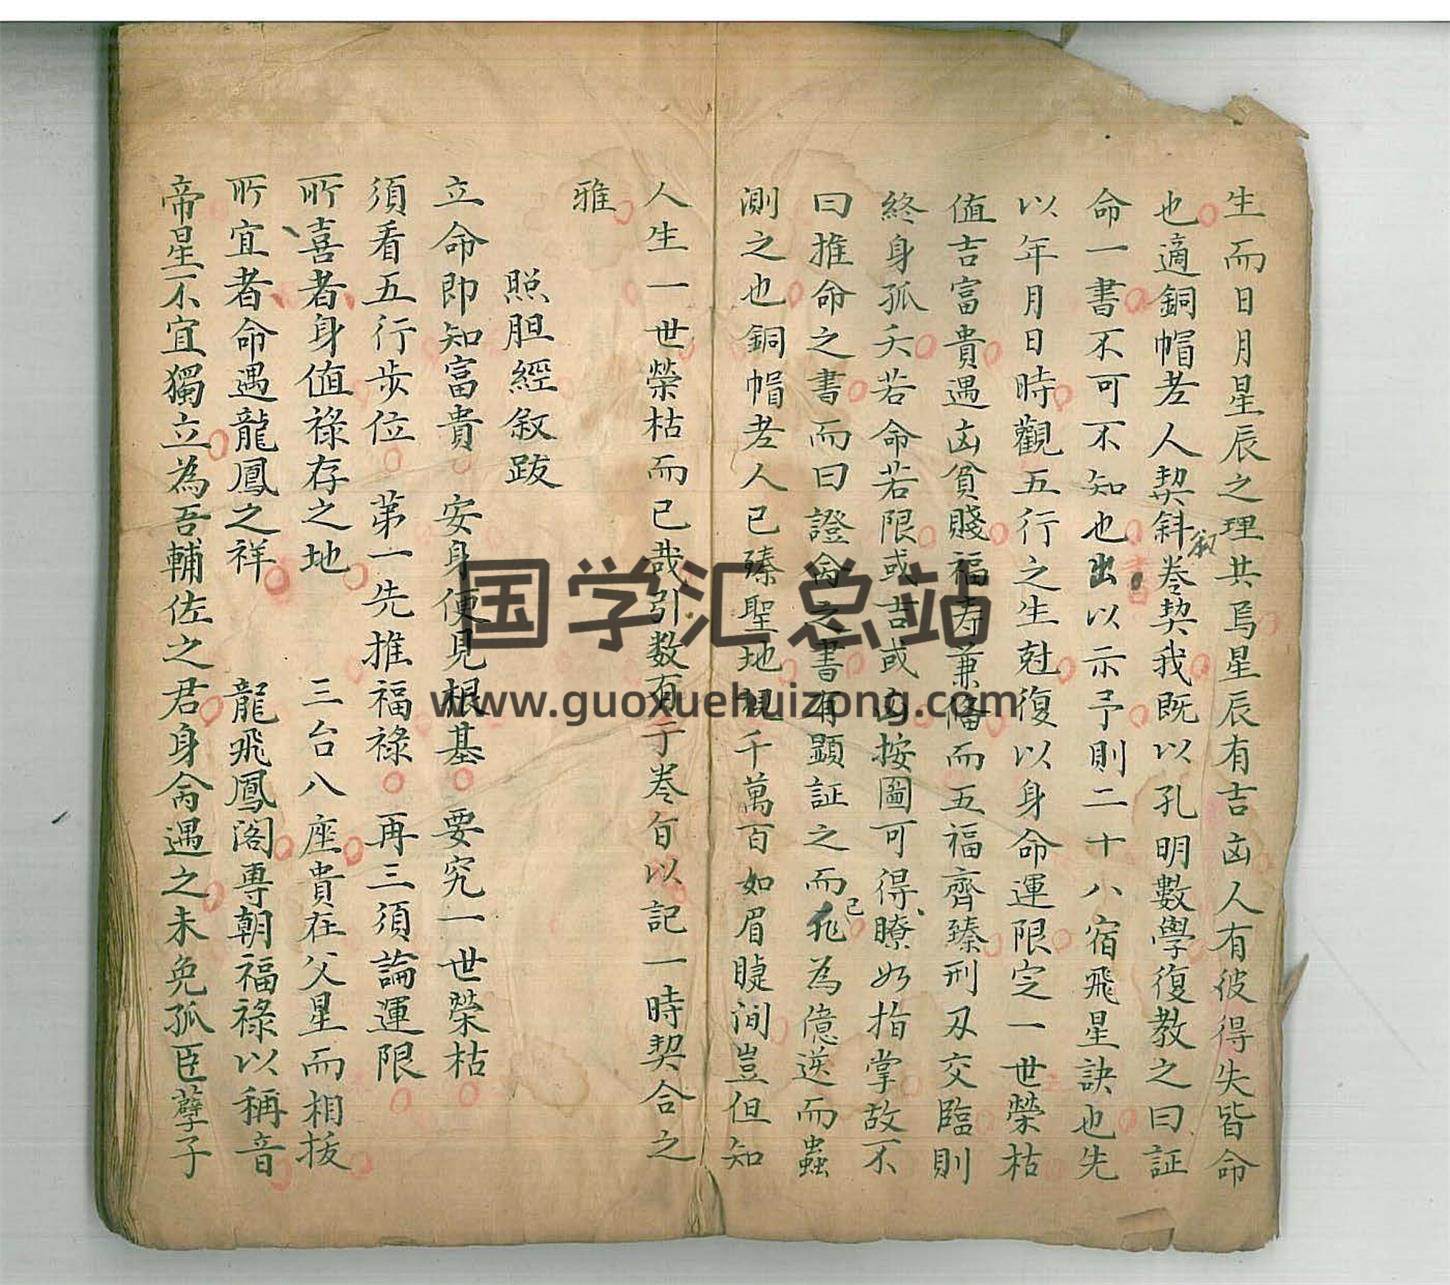 生而日月星辰之理共焉星辰有吉凶人有彼得失皆命
也適銅帽老人契斜叙卷契我既以孔明數學復教之曰証
命一書不可不知也出以示予則二十八宿飛星訣也先
以年月日時觀五行之生尅復以身命運限定一世榮枯
值吉富貴遇凶貧賤福寿兼俻而五福齊臻刑刃交臨則
終身孤夭若命若限或吉或凶按圖可得瞭如指掌故不
曰推命之書而曰證命之書有顕証之而已非為億逆而蠡
測之也銅帽老人已臻聖地視千萬百如眉睫间豈但知
人生一世榮枯而已哉引数有于卷首以記一時契合之
雅
照胆經叙跋
立命即知富貴 安身便見根基 要究一世榮枯
須看五行步位 第一先推福祿 再三須論運限
所喜者身值祿存之地 三台八座貴在父星而相援
所宜者命遇龍鳳之祥 龍飛鳳阁專朝福祿以稱音
帝星不宜獨立為吾輔佐之君身命遇之未免孤臣孽子
国学汇总站
www.guoxuehuizong.com